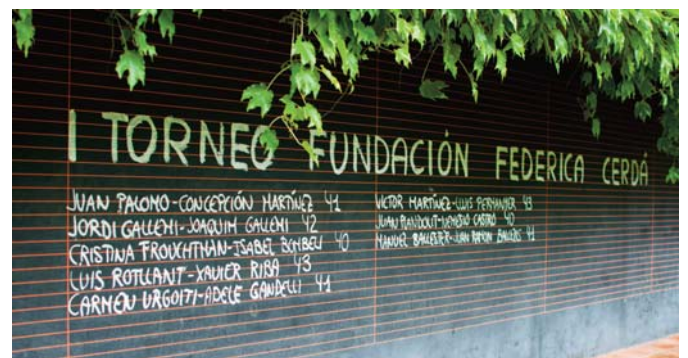 I TORNEO FUNDACIÓN FEDERICA CERDÁ
JUAN PALOMO-CONCEPCIÓN MARTÍNEZ 41
JORDI GALLEMI-JOAQUIM GALLEMI 42
CRISTINA FROUCHTMAN-ISABEL BOMBELI 40
LUIS ROTLLANT-XAVIER RIBA 43
CARMEN URGOITI-ADELE GANDELLI 41
VICTOR MARTÍNEZ-LUIS PERMANYER 43
JUAN PLANDOLIT-NEMESIO CASTRO 40
MANUEL BALLESTER-JUAN RAMON BALLELLS 41